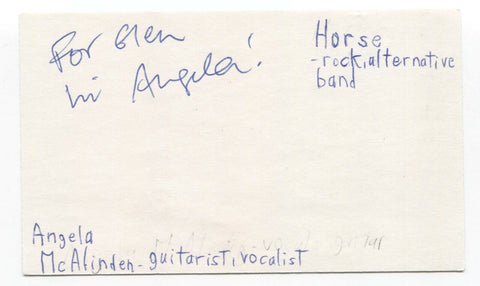 For Glen
hi Angela!
Horse
-rock,alternative
band
Angela
McAlinden-guitarist,vocalist